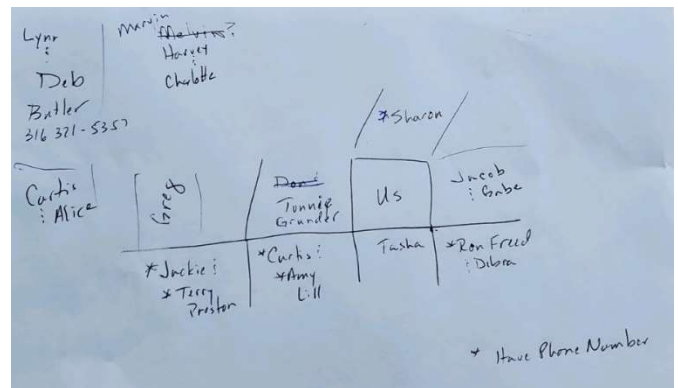 Lynn
:
Deb
Butler
316 321-5357
Marvin
Melvin?
Harvey
:
Charlotte
*Sharon
Curtis
: Alice
Greg
Doni
Tonnie
Grunder
Us
Jacob
: Gabe
*Jackie :
*Terry
Preston
*Curtis :
*Amy
Lill
Tasha
*Ron Freed
: Dibra
* Have Phone Number